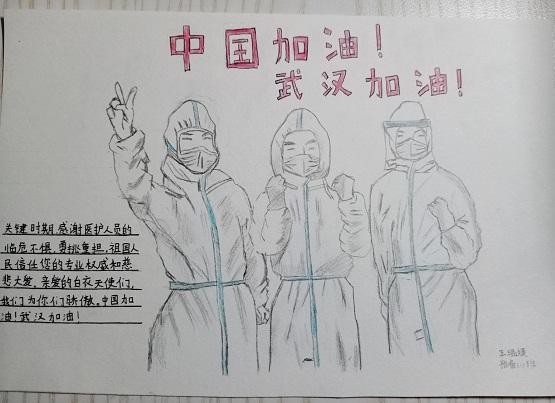 中国加油！
武汉加油！
关键时期感谢医护人员的
临危不惧，勇挑重担，祖国人
民信任您的专业权威和慈
悲大爱，亲爱的白衣天使们，
我们为你们骄傲。中国加
油！武汉加油！